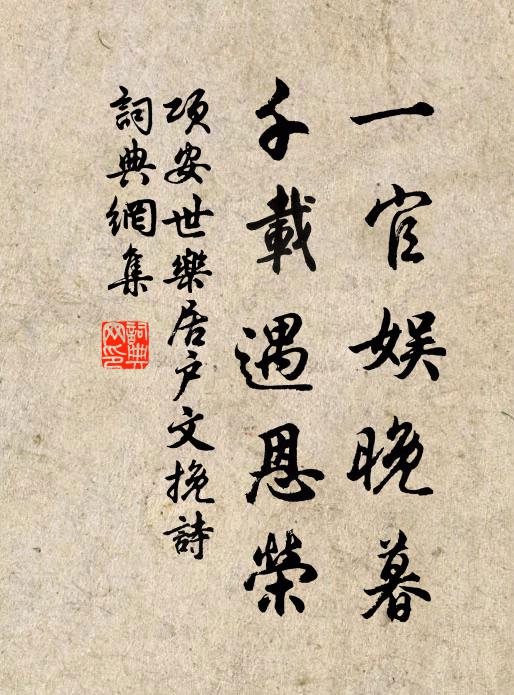 一官娱晚暮
千載遇恩榮
項安世樂居户文挽詩
詞典網集
詞典網印